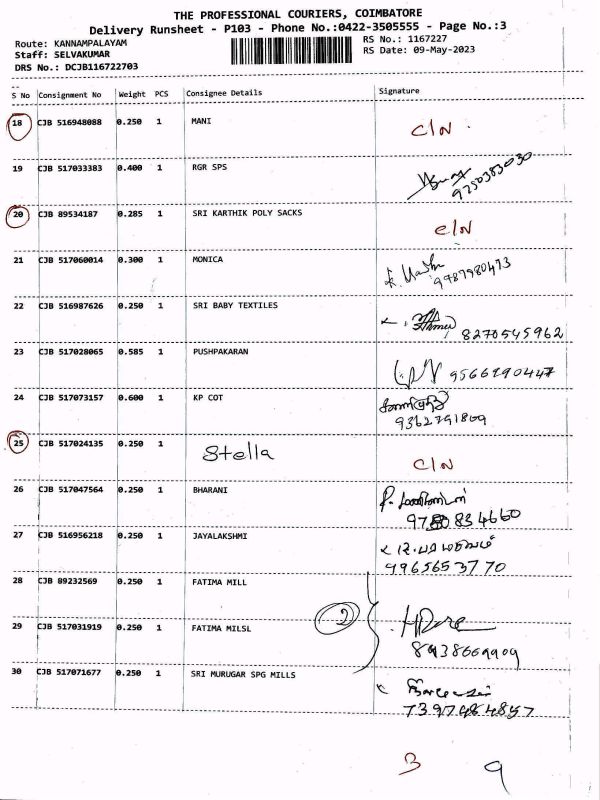 THE PROFESSIONAL COURIERS, COIMBATORE
Delivery Runsheet - P103 - Phone No.:0422-3505555 - Page No.:3
Route: KANNAMPALAYAM
RS No.: 1167227
Staff: SELVAKUMAR
RS Date: 09-May-2023
DRS No.: DCJB116722703
S No Consignment No Weight PCS Consignee Details Signature
18 CJB 516948088 0.250 1 MANI C/N
19 CJB 517033383 0.400 1 RGR SPS 9750383030
20 CJB 89534187 0.285 1 SRI KARTHIK POLY SACKS C/N
21 CJB 517060014 0.300 1 MONICA 9987980473
22 CJB 516987626 0.250 1 SRI BABY TEXTILES 8270545962
23 CJB 517028065 0.585 1 PUSHPAKARAN 9566290447
24 CJB 517073157 0.600 1 KP COT 9362791809
25 CJB 517024135 0.250 1 Stella C/N
26 CJB 517047564 0.250 1 BHARANI
27 CJB 516956218 0.250 1 JAYALAKSHMI 9965653770
28 CJB 89232569 0.250 1 FATIMA MILL 2
29 CJB 517031919 0.250 1 FATIMA MILSL 8938669909
30 CJB 517071677 0.250 1 SRI MURUGAR SPG MILLS
3 9